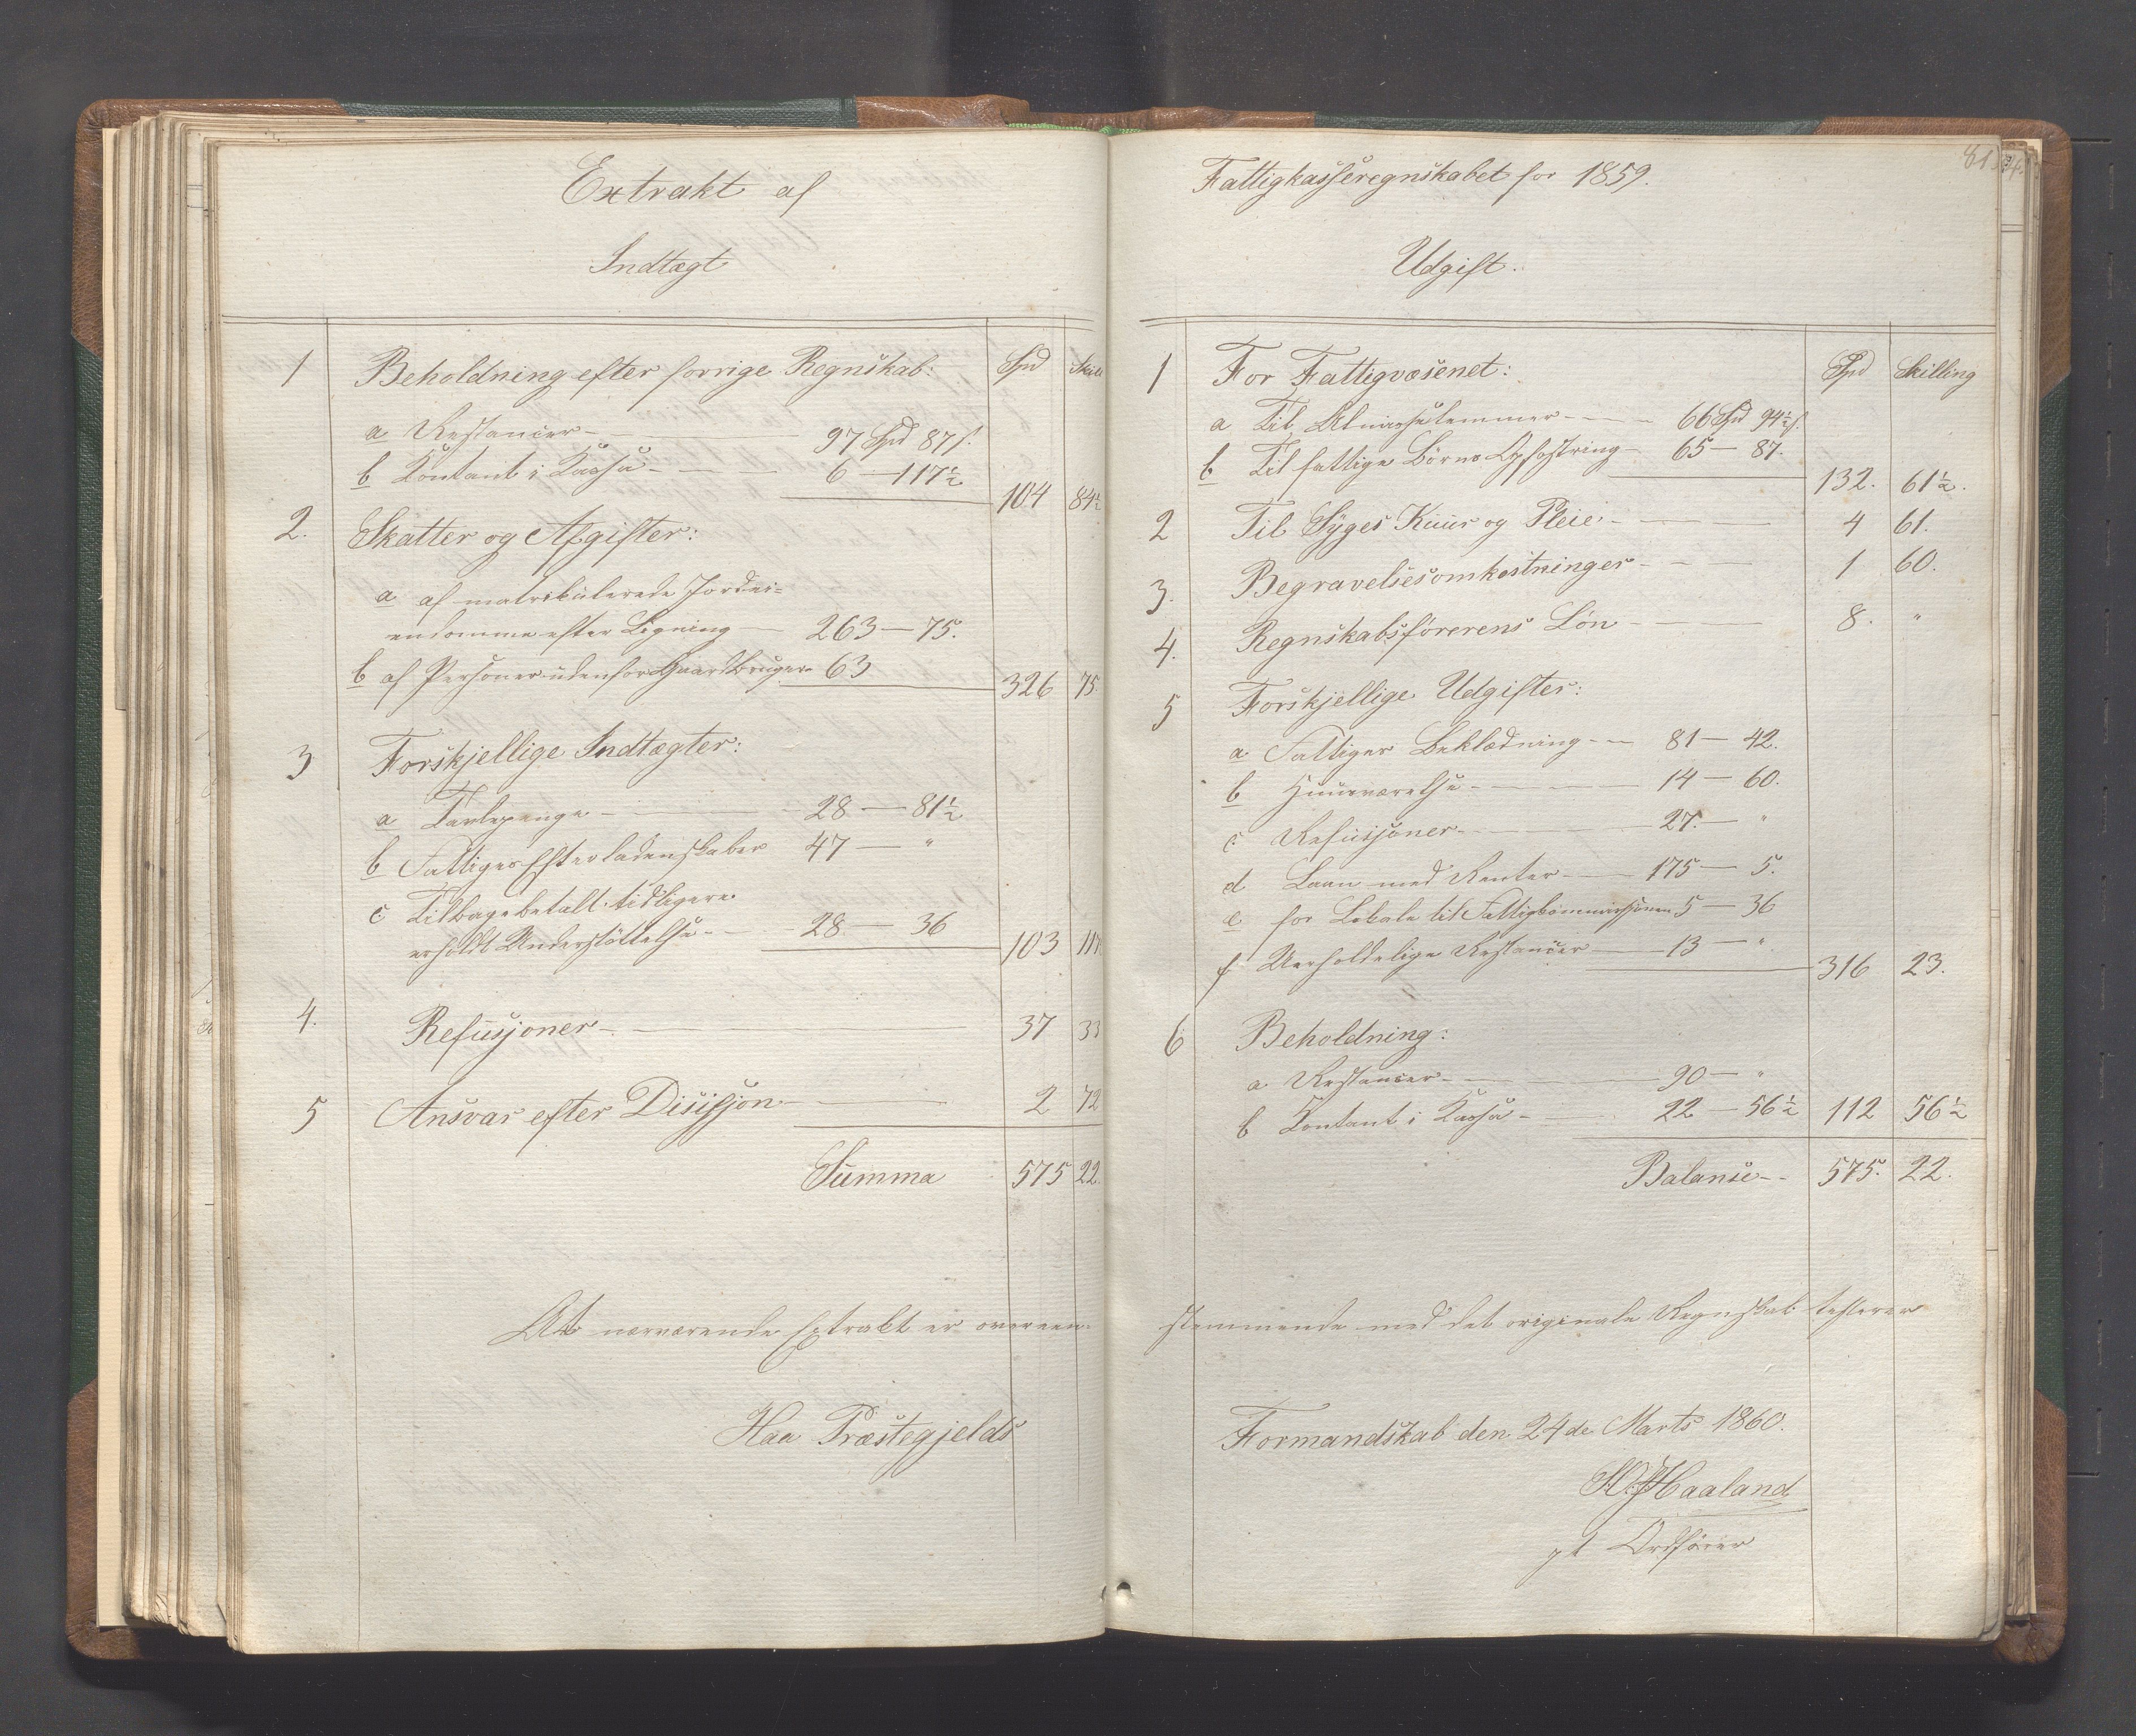 Extrakt af
Indtægt
Spd Skill
1 Beholdning efter forrige Regnskab:
a Restancer — 97 Spd 87 s.
b Kontant i Kassa — 6 — 117½
104 84½
2. Skatter og Afgifter:
a af matrikulerede Jordei=
endomme efter Ligning — 263 — 75.
b af Personer udenfor Gaardbruger 63
326 75.
3 Forskjellige Indtægter:
a Tavlepenge — 28 — 81½
b Fattiges Efterladenskaber 47 — "
c Tilbagebetalt tidligere
erholdt Understøttelse — 28 — 36
103 117
4. Refusjoner — 37 33
5 Ansvar efter Disisjon — 2 72
Summa 575 22.
At nærværende Extrakt er overeen=
Haa Præstegjelds
61
Fattigkasseregnskabet for 1859.
Udgift.
Spd Skilling
1 For Fattigvæsenet:
a Til Almisselemmer — 66 Spd 94½ s.
b Til fattige Børns Opfostring — 65 — 87.
132. 61½.
2 Til Syges Kuur og Pleie — 4 61.
3. Begravelsesomkostninger — 1 60.
4. Regnskabsførerens Løn — 8. "
5 Forskjellige Udgifter:
a Fattiges Beklædning — 81 — 42.
b Huusværelse — 14 — 60.
c Refusjoner — 27. — "
d Laan med Renter — 175 — 5.
e for Lokale til Fattigkommissionen 5 — 36
f Uerholdelige Restancer — 13 — "
316 23.
6 Beholdning:
a Restancer — 90 — "
b Kontant i Kassa — 22 — 56½ 112 56½
Balanse — 575. 22.
stemmende med det originale Regnskab testerer
Formandskab den 24de Marts 1860.
Haaland
pt Ordfører